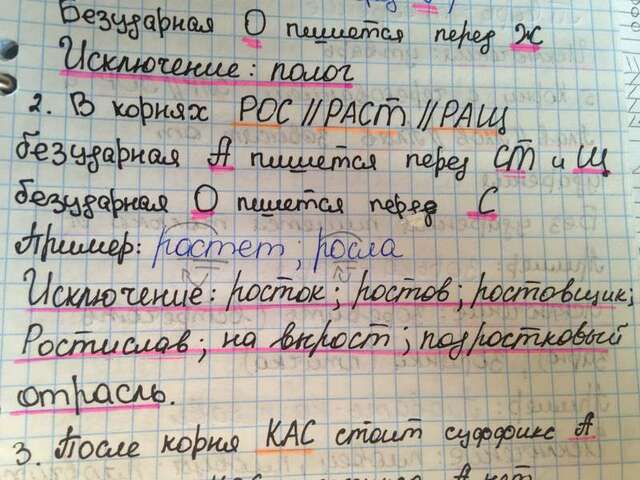 Безударная О пишется перед Ж
Исключение: полог
2. В корнях РОС // РАСТ // РАЩ
безударная А пишется перед СТ и Щ
безударная О пишется перед С
Пример: растет; росла
Исключение: росток; ростов; ростовщик;
Ростислав; на вырост; подростковый
отрасль.
3. После корня КАС стоит суффикс А